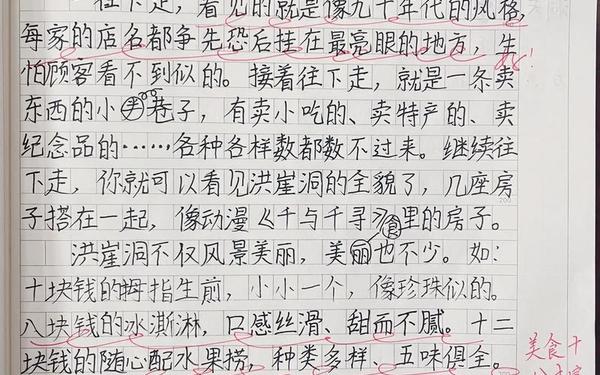 往下走，看见的就是像九十年代的风格，
每家的店名都争先恐后挂在最亮眼的地方，生
怕顾客看不到似的。接着往下走，就是一条卖
东西的小巷子，有卖小吃的、卖特产的、卖
纪念品的……各种各样数都数不过来。继续往
下走，你就可以看见洪崖洞的全貌了，几座房
子搭在一起，像动漫《千与千寻》里的房子。
洪崖洞不仅风景美丽，美食也不少。如：
十块钱的拇指生煎，小小一个，像珍珠似的。
八块钱的冰澌淋，口感丝滑、甜而不腻。十二
块钱的随心配水果捞，种类多样、五味俱全。
美食十